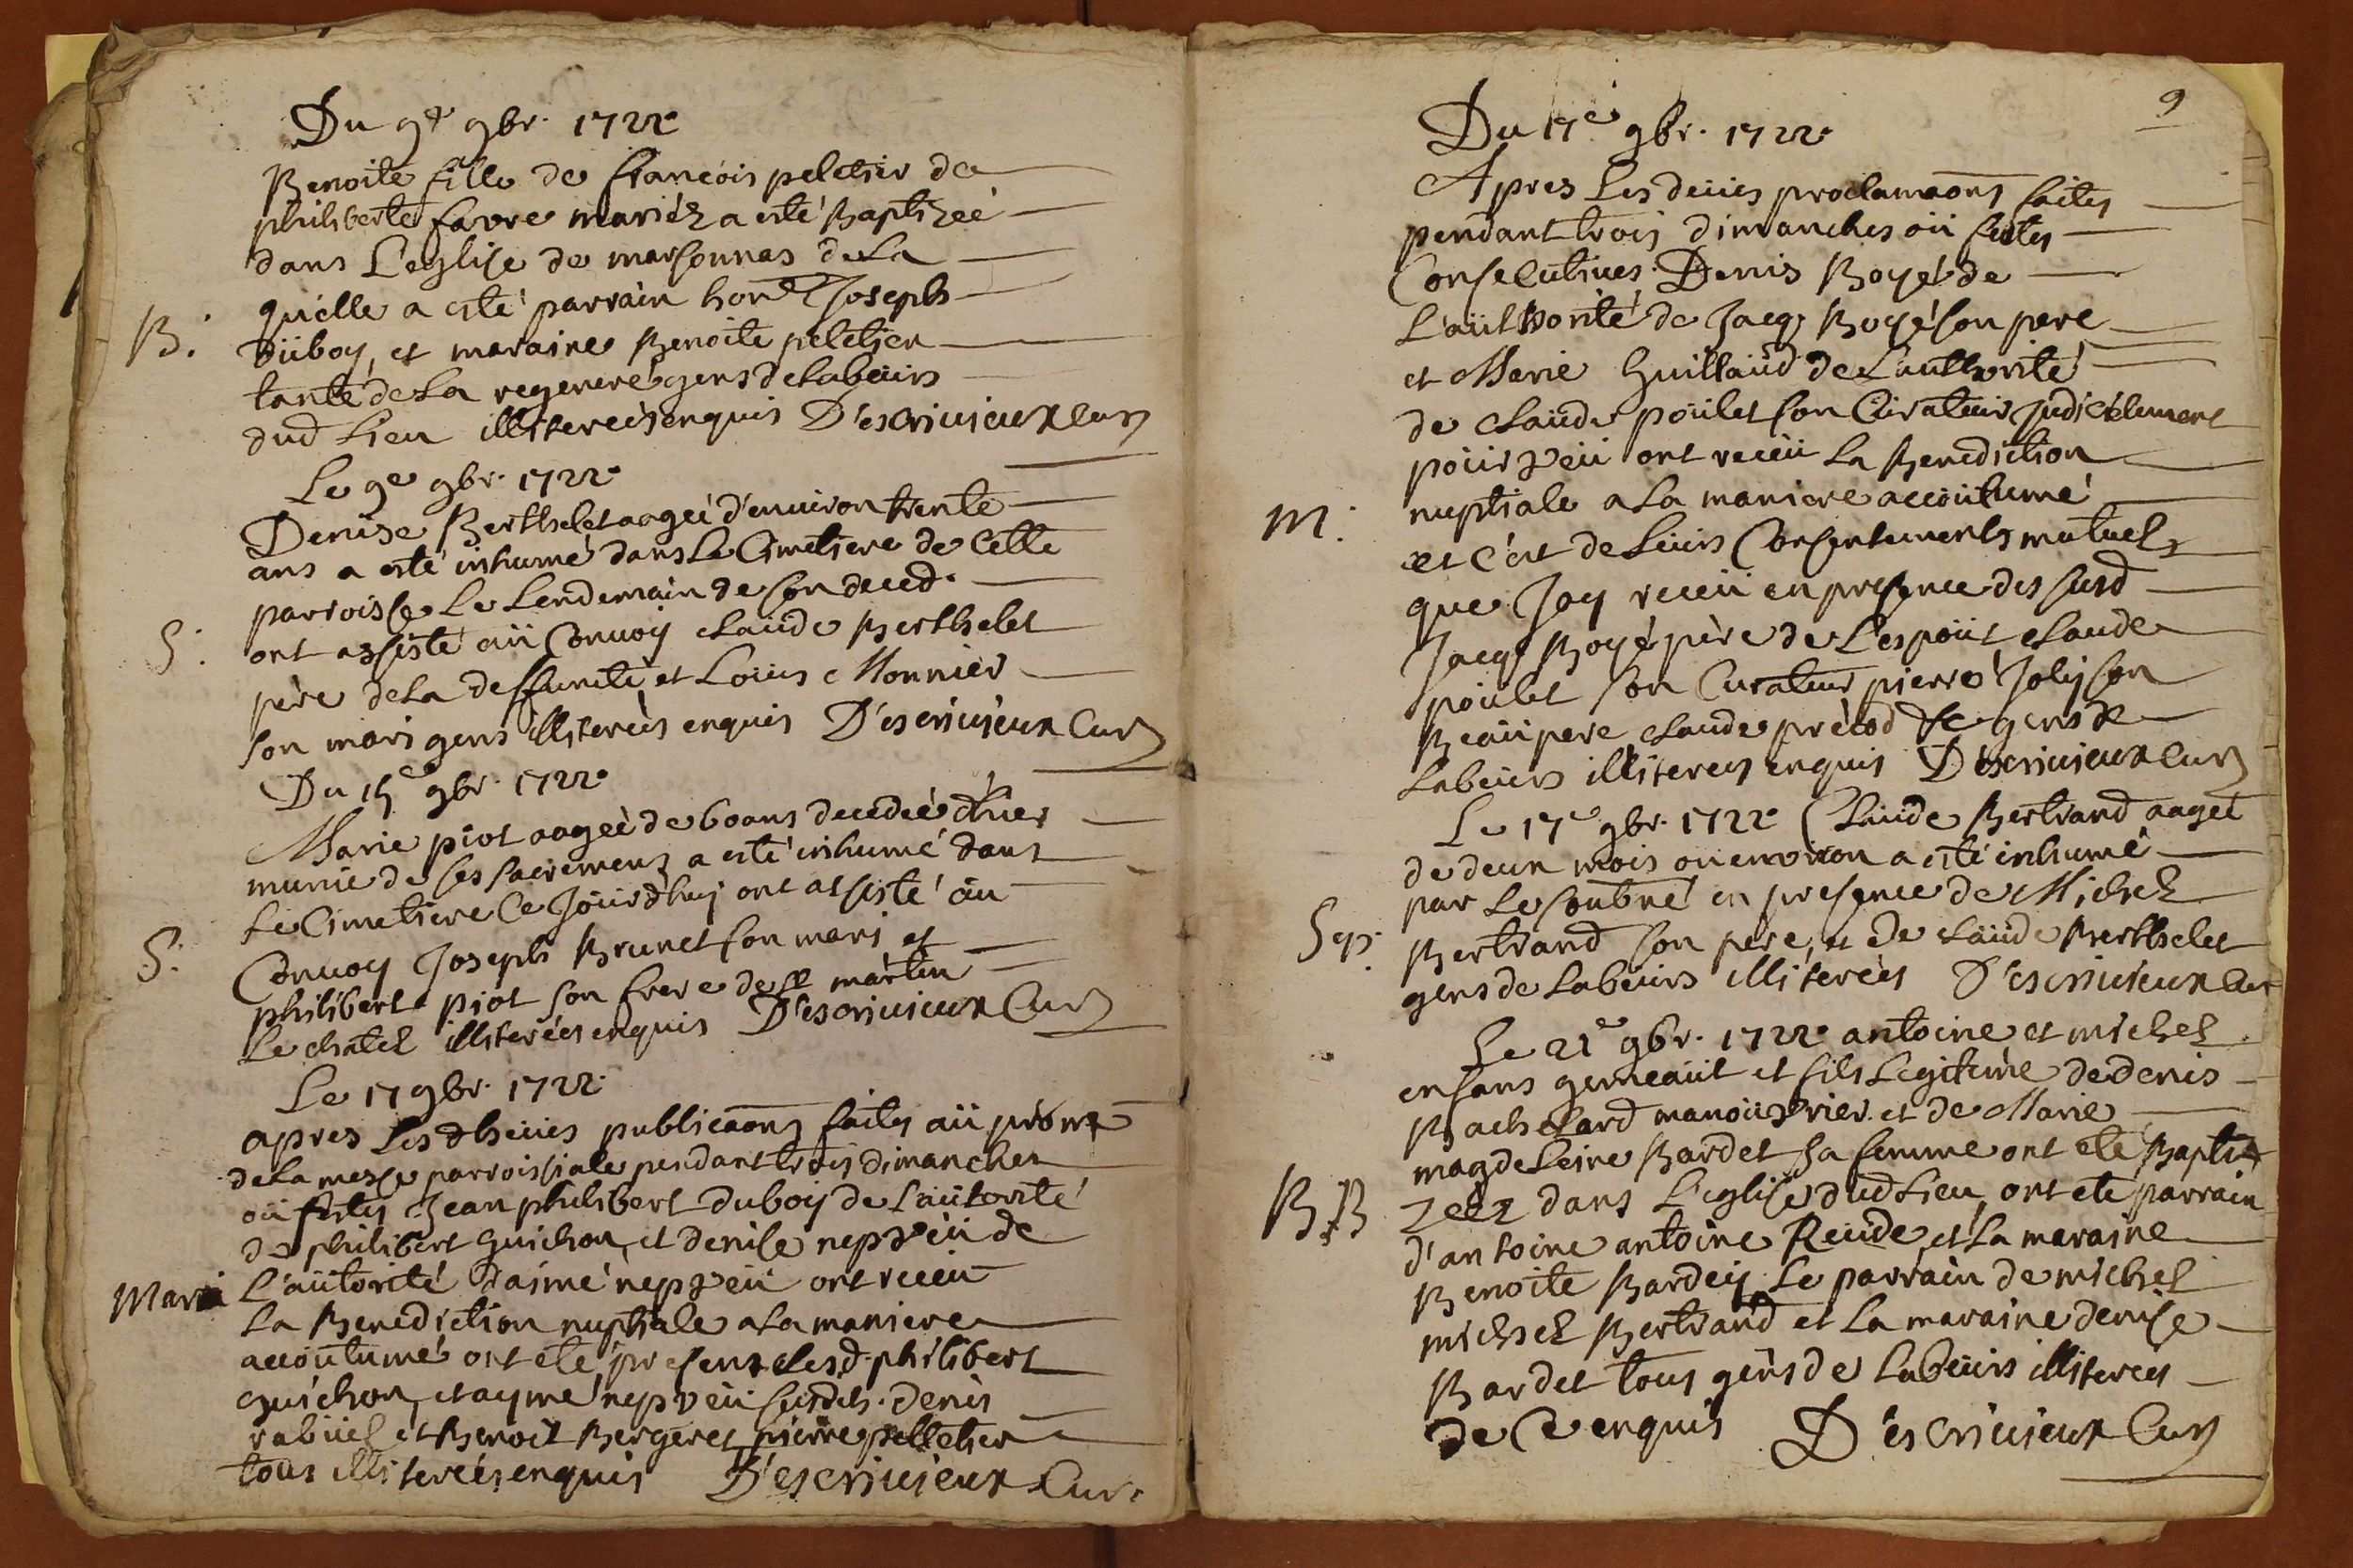 Du 9e 9br. 1722
Benoite fille de francois peletier de
philiberte favre mariéz a esté Baptizeé
dans L'eglise de marsonnas de La
quelle a esté parrain hon. Joseph
B. duboy, et maraine Benoite peletier
tante de La regeneré gens de Labeurs
dud Lieu illitereés enquis D'escriuieux Cur
Le 9e 9br. 1722
Denise Berthelet aageé d'enuiron trente
ans a esté inhumé dans Le Cimetiere de Cette
parroisse Le Lendemain de son deced.
S. ont assisté au Conuoy claude Berthelet
père de La deffuncte et Louis Monnier
son mari gens illitereés enquis D'escriuieux Cur
Du 15e 9br. 1722
Marie piot aageé de 60 ans decedeé d'hier
munie de ses sacremens a esté inhumé dans
Le Cimetiere Ce Jourd'huy ont assisté au
S. Conuoy Joseph Brunet son mari et
philibert piot son frere de St martin
Le chatel illitereés enquis D'escriuieux Cur
Le 17 9br. 1722
apres Les dheües publicaons faites au prône
de La messe parroissiale pendant trois dimanches
ou festes Jean philibert duboy de L'autorité
de philibert Guichon, et denise nepveu de
Mari L'autorité d'aimé nepveu ont receu
La Benediction nuptiale a La maniere
accoutumé ont eté presens Lesd. philibert
Guichon, et aymé nepveu susdts. denis
rabuel et Benoit Bergeret pierre pelletier
tous illitereés enquis D'escriuieux Cur.
9
Du 17e 9br. 1722
Apres Les deües proclamaons faites
pendant trois dimanches ou festes
Consecutiues Denis Boyé de
L'authorité de Jacq. Boyé son pere
et Marie Guillaud de L'authorité
de claude poulet son Curateur judiciélement
pourveu ont receu La Benediction
M. nuptiale a La maniere accoutumé
et c'est de Leurs Consentements mutuels
que J'ay receu en presence des susd
Jacq. Boyé père de L'espout claude
poulet son Curateur pierre Joly son
Beaupere claude précod gens de
Labeurs illiterey enquis D'escriuieux Cur
Le 17e 9br. 1722 Claude Bertrand aageé
de deux mois ou enuiron a esté inhumé
par Le soubné en presence de Michel
Sep. Bertrand son pere, et de claude Berthelet
gens de Labeurs illitereés D'escriuieux Cur
Le 21e 9br. 1722 antoine et michel
enfans gemeaut et fils Legiteime de denis
Bachelard manouvrier et de Marie
magdeleine Bardet sa femme ont eté Bapti
B.B zeéz dans L'eglise dud Lieu, ont eté parrain
d'antoine antoine Reude et La maraine
Benoite Bardey Le parrain de michel
michel Bertrand et La maraine denise
Bardet tous gens de Labeurs illiterey
de Ce enquis D'escriuieux Cur